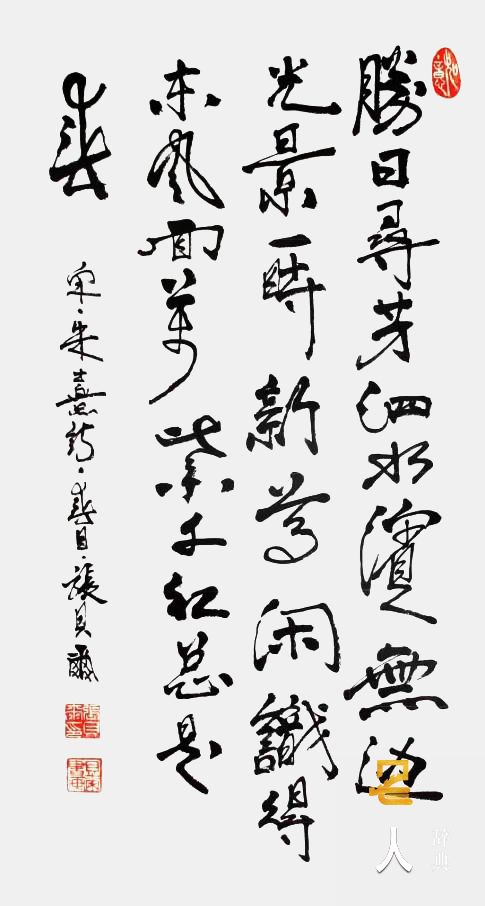 勝日尋芳泗水濱無邊
光景一時新等閑識得
東風面萬紫千紅總是
春
宋·朱熹詩·春日·張貝爾
如意
名人辞典